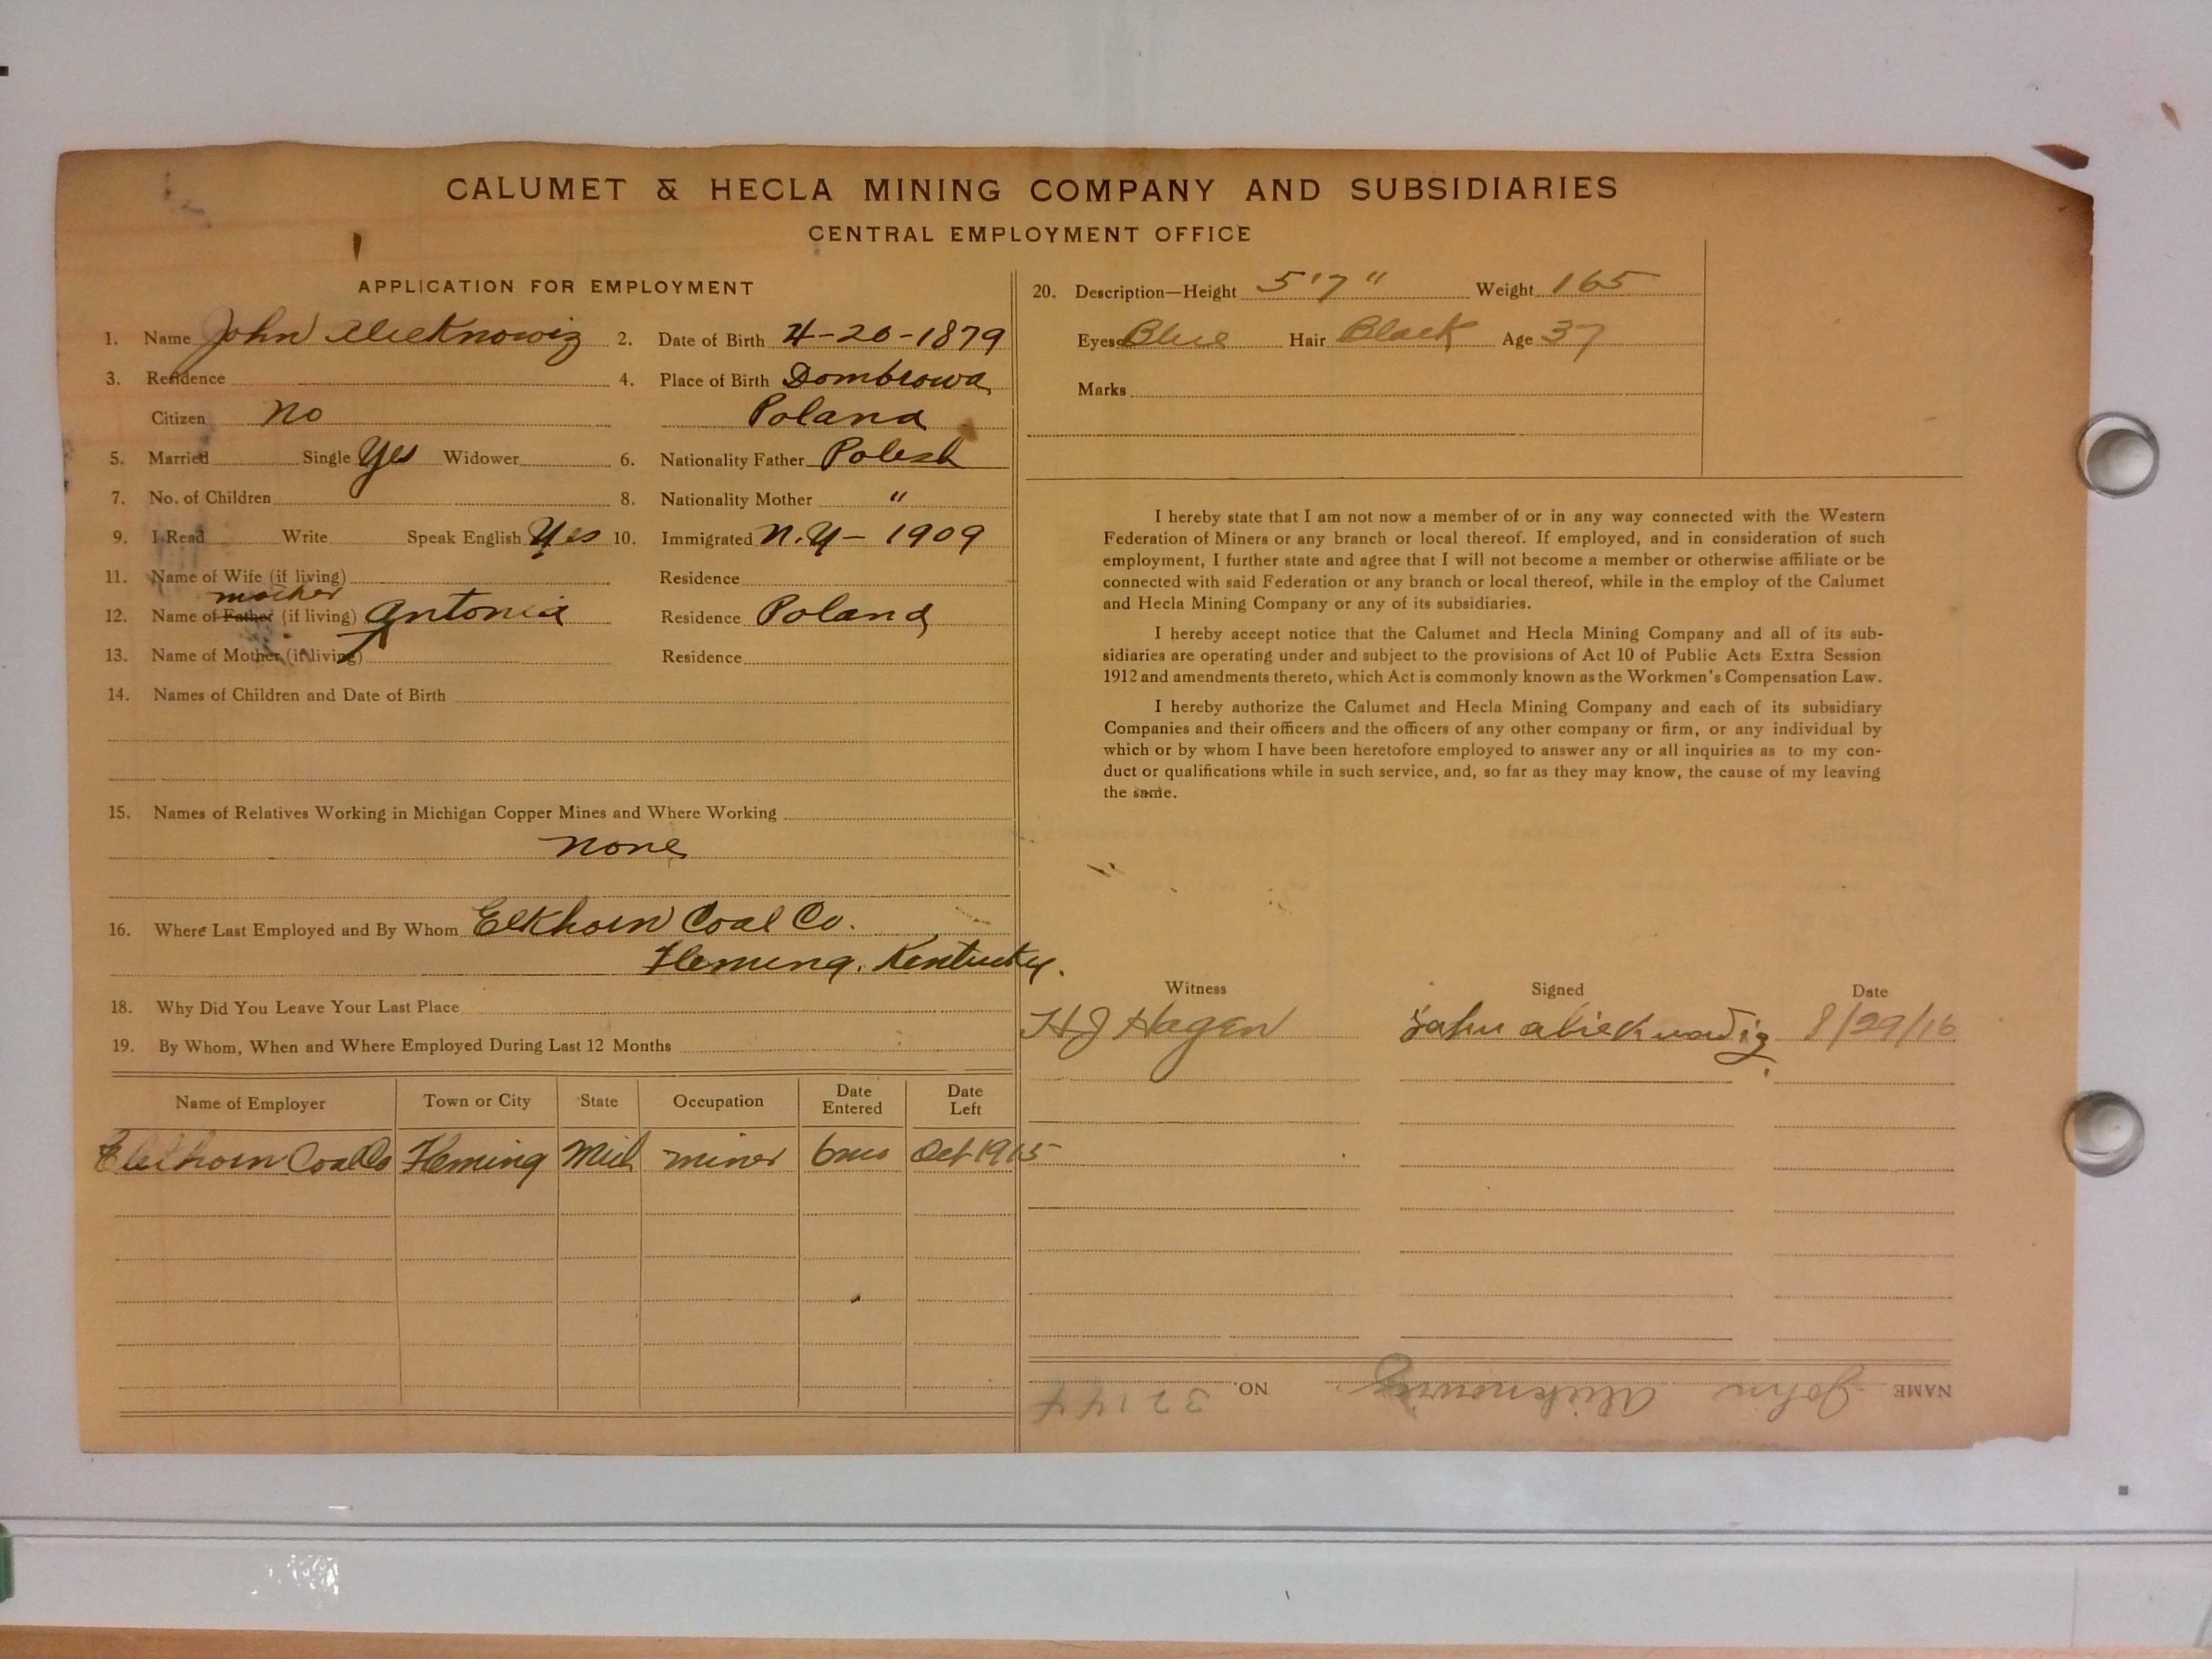 CALUMET & HECLA MINING COMPANY AND SUBSIDIARIES
CENTRAL EMPLOYMENT OFFICE
APPLICATION FOR EMPLOYMENT
1. Name John Alieknowiz 2. Date of Birth 4-20-1879
3. Residence 4. Place of Birth Dombrowa
Citizen no Poland
5. Married Single Yes Widower 6. Nationality Father Polish
7. No. of Children 8. Nationality Mother "
9. I Read Write Speak English Yes 10. Immigrated N.Y- 1909
11. Name of Wife (if living) Residence
mother
12. Name of Father (if living) Antonia Residence Poland
13. Name of Mother (if living) Residence
14. Names of Children and Date of Birth
15. Names of Relatives Working in Michigan Copper Mines and Where Working
none
16. Where Last Employed and By Whom Elkhorn Coal Co.
Fleming, Kentucky.
18. Why Did You Leave Your Last Place
19. By Whom, When and Where Employed During Last 12 Months
Name of Employer Town or City State Occupation Date Entered Date Left
Elkhorn Coal Co Fleming Mich miner 6mos Oct 1915
20. Description—Height 5'7" Weight 165
Eyes Blue Hair Black Age 37
Marks
I hereby state that I am not now a member of or in any way connected with the Western
Federation of Miners or any branch or local thereof. If employed, and in consideration of such
employment, I further state and agree that I will not become a member or otherwise affiliate or be
connected with said Federation or any branch or local thereof, while in the employ of the Calumet
and Hecla Mining Company or any of its subsidiaries.
I hereby accept notice that the Calumet and Hecla Mining Company and all of its sub-
sidiaries are operating under and subject to the provisions of Act 10 of Public Acts Extra Session
1912 and amendments thereto, which Act is commonly known as the Workmen's Compensation Law.
I hereby authorize the Calumet and Hecla Mining Company and each of its subsidiary
Companies and their officers and the officers of any other company or firm, or any individual by
which or by whom I have been heretofore employed to answer any or all inquiries as to my con-
duct or qualifications while in such service, and, so far as they may know, the cause of my leaving
the same.
Witness Signed Date
H J Hagen John alieknowiz 8/29/16
NAME John Alieknowiz NO. 32144